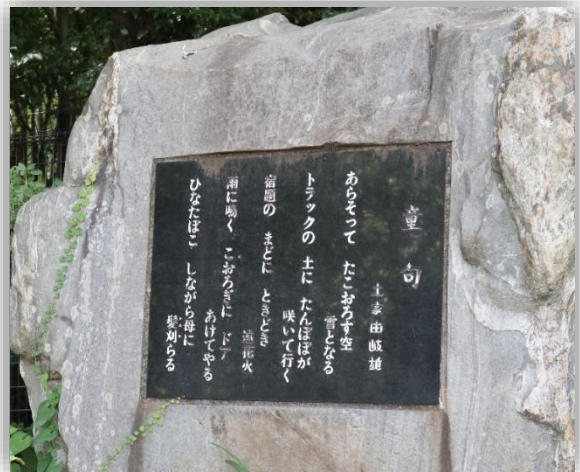 童句
土家由岐雄
あらそって たこおろす空
雪となる
トラックの 土に たんぽぽが
咲いて行く
宿題の まどに ときどき
遠花火
雨に鳴く こおろぎに ドア
あけてやる
ひなたぼこ しながら母に
髪刈らる